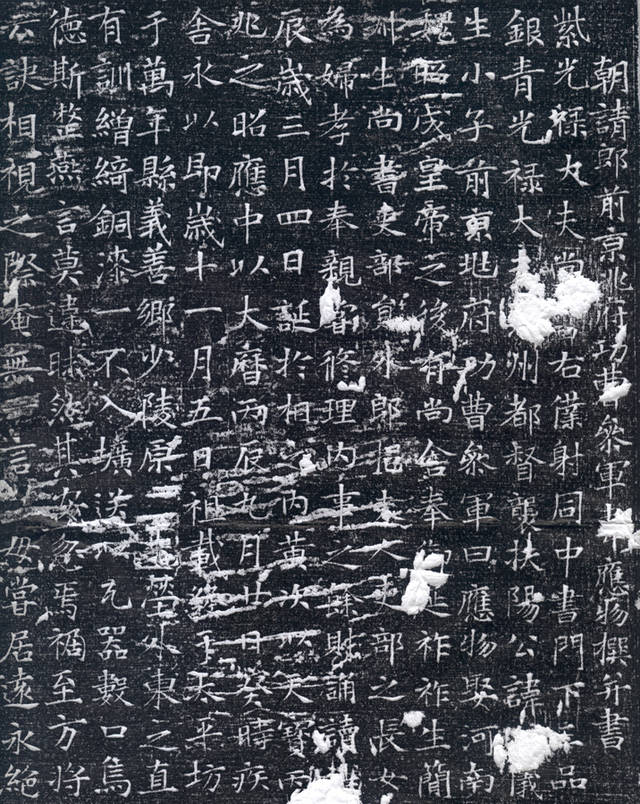 朝請郎前京兆府功曹參軍韋應物撰并書
紫光祿大夫尚書右僕射同中書門下三品
銀青光祿大夫州都督襲扶陽公諱儀
生小子前京兆府功曹參軍曰應物娶河南
魏昭成皇帝之後有尚舍奉御延祚祚生簡
生尚書吏部員外郎挹夫人吏部之長女
為婦孝於奉親嘗修理內事之餘則誦讀
辰歲三月四日誕於相之內黃次以天寶丙
兆之昭應中以大曆丙辰九月廿日癸時疾
舍永以即歲十一月五日祖載終于太平坊
于萬年縣義善鄉少陵原先塋外東之直
有訓繒綺銅漆一不入壙送以瓦器數口烏
德斯整燕言莫違昧然其安忽焉禍至方將
云訣相視之際奄無一言母嘗居遠永絕